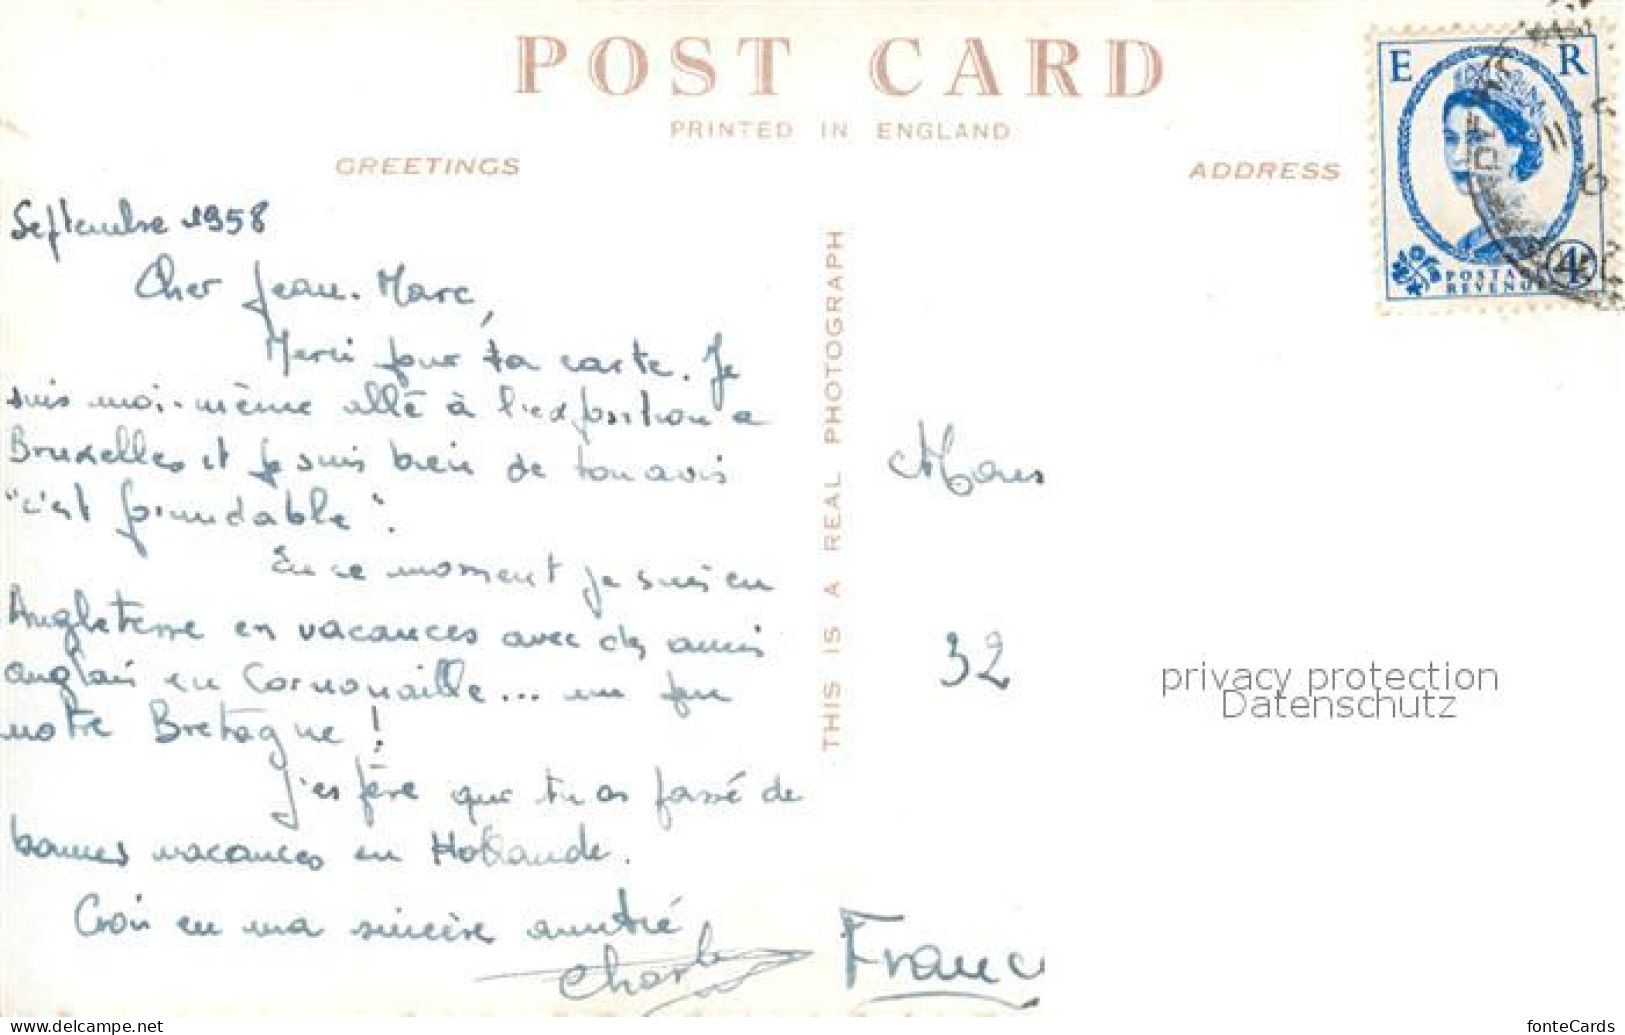 POST CARD
PRINTED IN ENGLAND
GREETINGS
ADDRESS
E R
POSTAGE
REVENUE
4
Septembre 1958
Cher Jean-Marc,
Merci pour ta carte. Je
suis moi-même allé à l'exposition a
Bruxelles et je suis bien de ton avis
"c'est formidable".
En ce moment je suis en
Angleterre en vacances avec des amis
anglais en Cornouaille... un peu
notre Bretagne!
J'espère que tu as passé de
bonnes vacances en Hollande.
Crois en ma sincère amitié
Charles
THIS IS A REAL PHOTOGRAPH
32
France
privacy protection
Datenschutz
www.delcampe.net
fonteCards